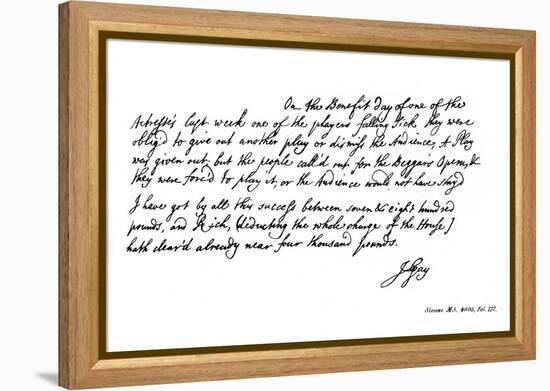 On the Benefit day of one of the
Actresse's last week one of the players falling sick they were
oblig'd to give out another play or dismiss the Audience, A Play
was given out, but the people call'd out for the Beggar's Opera, &
they were forc'd to play it, or the Audience would not have stayd
I have got by all this success between seven & eight hundred
pounds, and Rich, (deducting the whole charge of the House)
hath clear'd already near four thousand pounds.
J Gay
Sloane MS. 4605, Fol. 127.